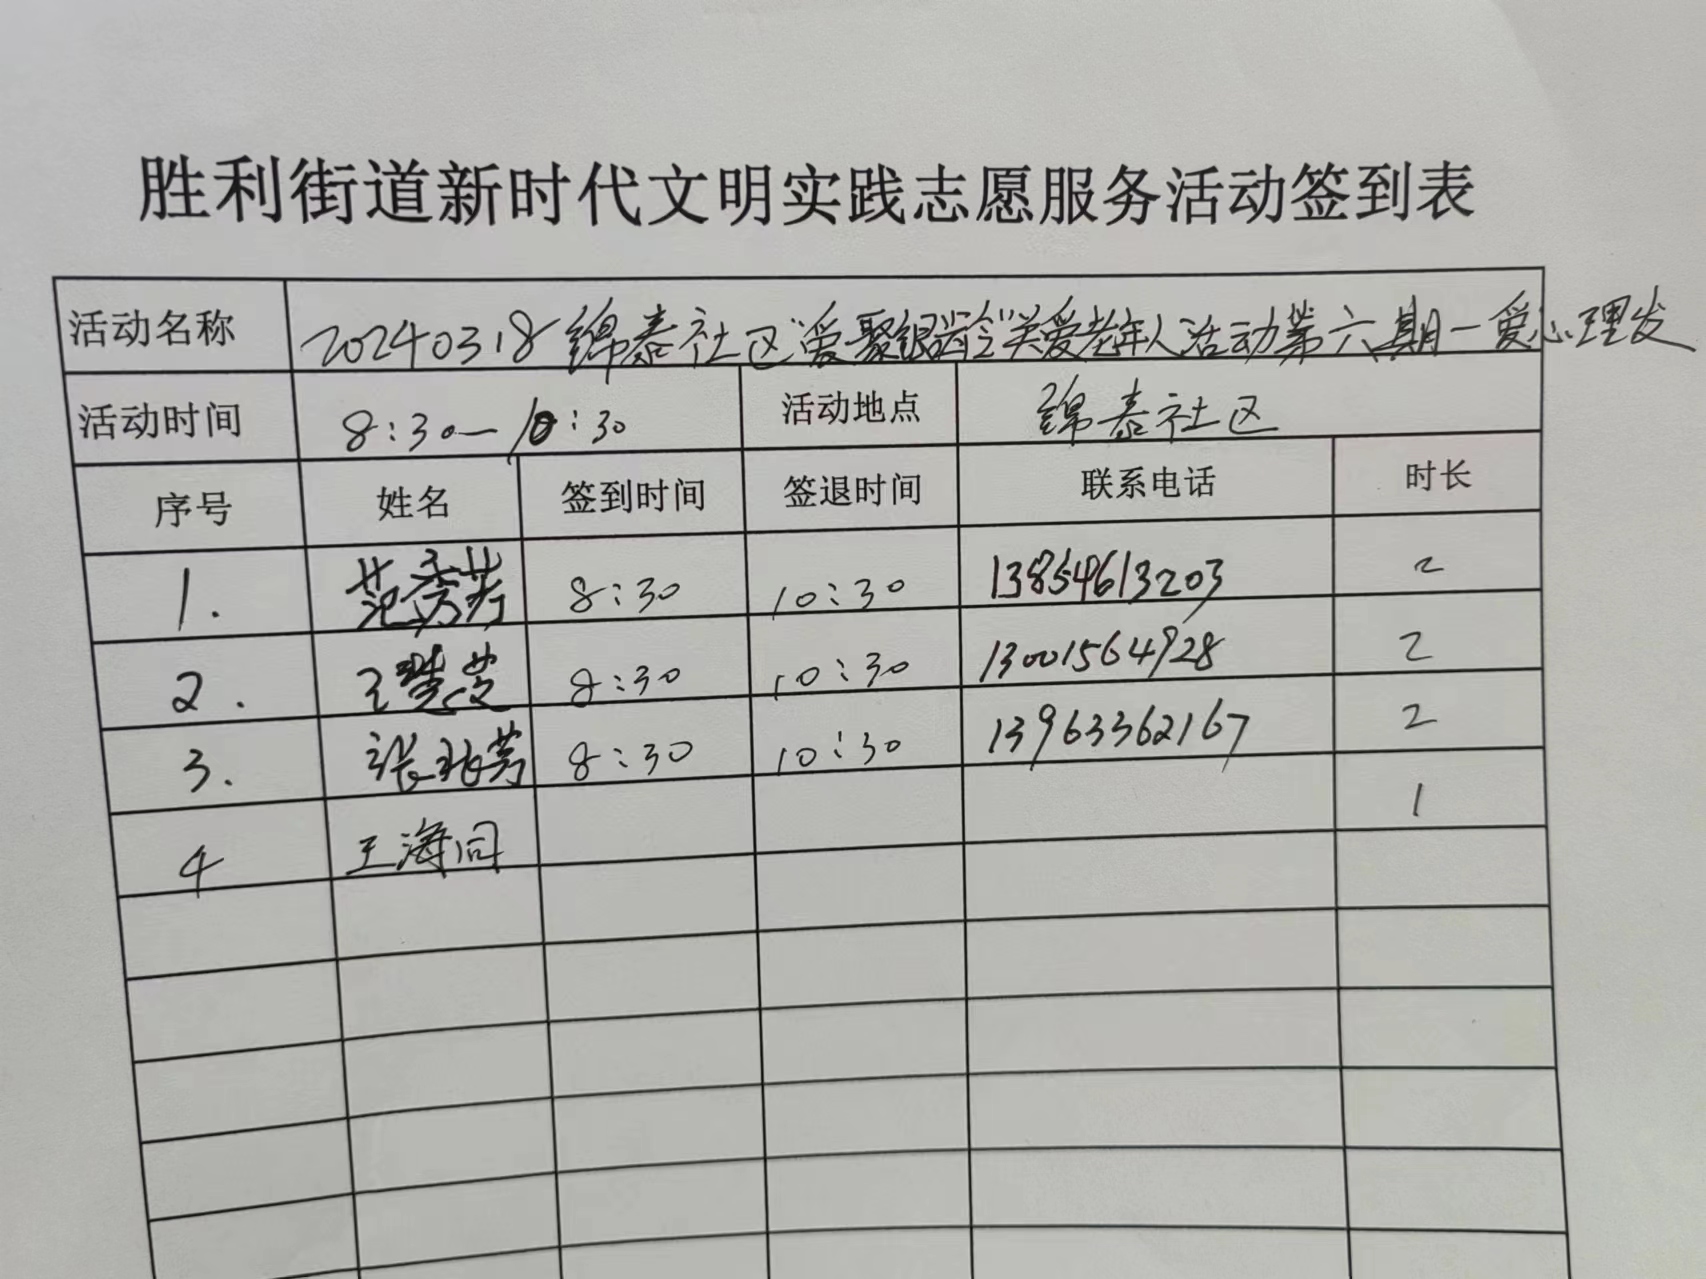 胜利街道新时代文明实践志愿服务活动签到表
活动名称 20240318锦泰社区"爱聚银龄"关爱老年人活动第六期一爱心理发
活动时间 8:30—10:30 活动地点 锦泰社区
序号 姓名 签到时间 签退时间 联系电话 时长
1. 范秀芳 8:30 10:30 13854613203 2
2. 王楚芝 8:30 10:30 13001564928 2
3. 张 芳 8:30 10:30 13963362167 2
4 王海同 1